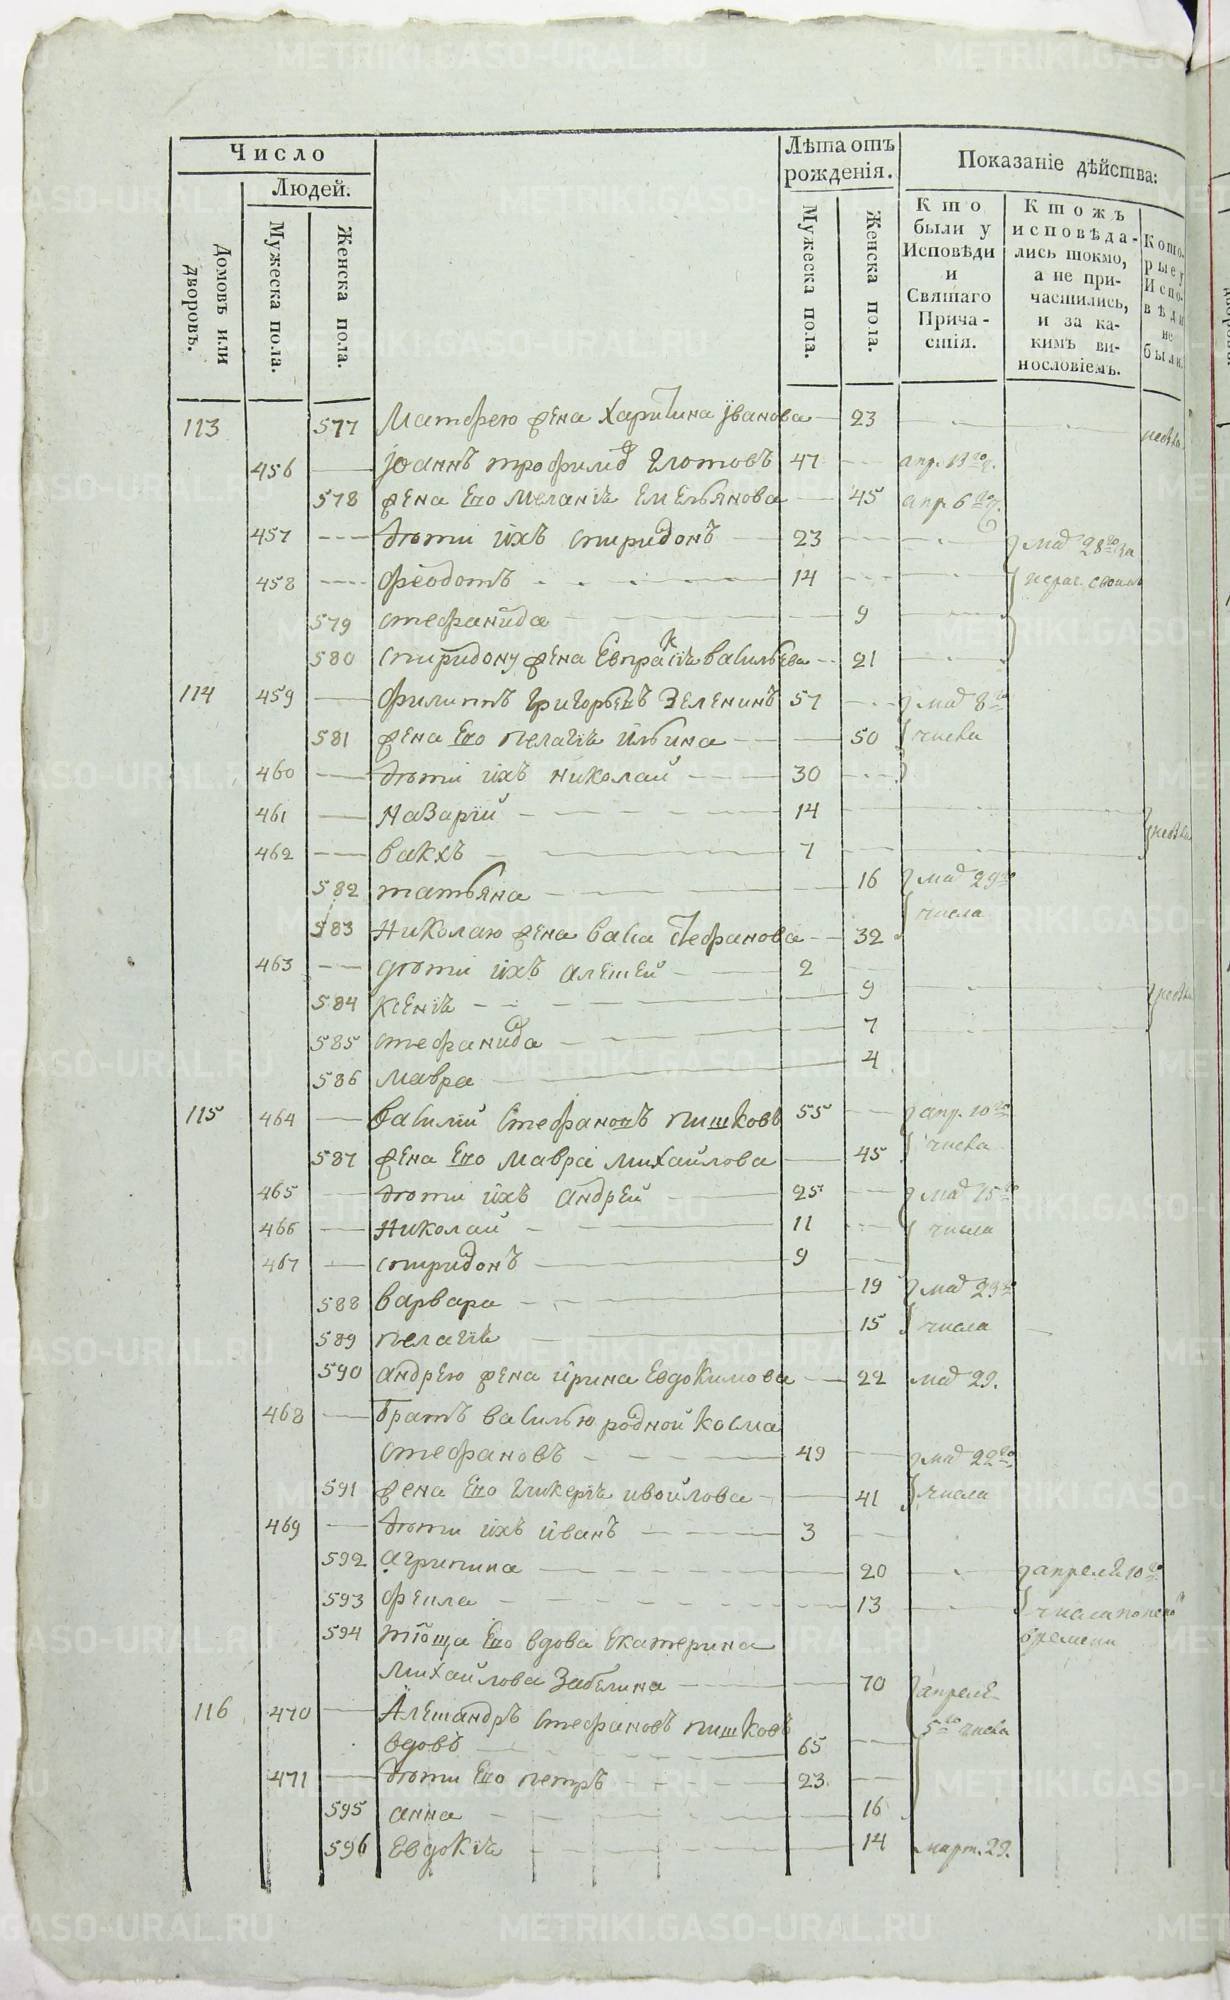 Число
Людей.
Домовъ или дворовъ.
Мужеска пола.
Женска пола.
Лѣта отъ рожденія.
Мужеска пола.
Женска пола.
Показаніе дѣйства:
Кто были у Исповѣди и Святаго Причастія.
Ктожъ исповѣдались токмо, а не причастились, и за какимъ винословіемъ.
Которые у Исповѣди не были.
113 577 Матфею жена Харитина Їванова 23
456 Іоаннъ трофимов Глотовъ 47 апр. 13го
578 жена Его меланія Емельянова 45 апр. 6го
457 дѣти ихъ спиридонъ 23 маія 28го
458 феодотъ 14
579 стефанида 9
580 спиридону жена Евпраксія васильева 21
114 459 филиппъ григорьевъ Зеленинъ 57 маія 8го
581 жена Его пелагія ильина 50 числа
460 дѣти ихъ николай 30
461 назарїй 14
462 вакхъ 7
582 татьяна 16 маія 29го
583 николаю жена васса Стефанова 32 числа
463 дѣти ихъ алексей 2
584 ксенія 9
585 стефанида 7
586 мавра 4
115 464 василий стефановъ пишковъ 55 апр. 10го
587 жена Его мавра михайлова 45 числа
465 дѣти ихъ андрей 25 маія 15го
466 николай 11 числа
467 спиридонъ 9
588 варвара 19 маія 23го
589 пелагія 15 числа
590 андрею жена ирина Евдокимова 22 маія 29.
468 братъ василью родной косма
стефановъ 49 маія 22го
591 жена Его гликерія ивойлова 41 числа
469 дѣти ихъ иванъ 3
592 агрипина 20 апреля 10го
593 фекла 13 числа
594 тюща Его вдова Екатерина времени
михайлова Забелина 70 апреля
116 470 Александръ стефановъ пишковъ 5го числа
вдовъ 65
471 дѣти Его петръ 23
595 анна 16
596 Евдокія 14 март. 29.
METRIKI.GASO-URAL.RU